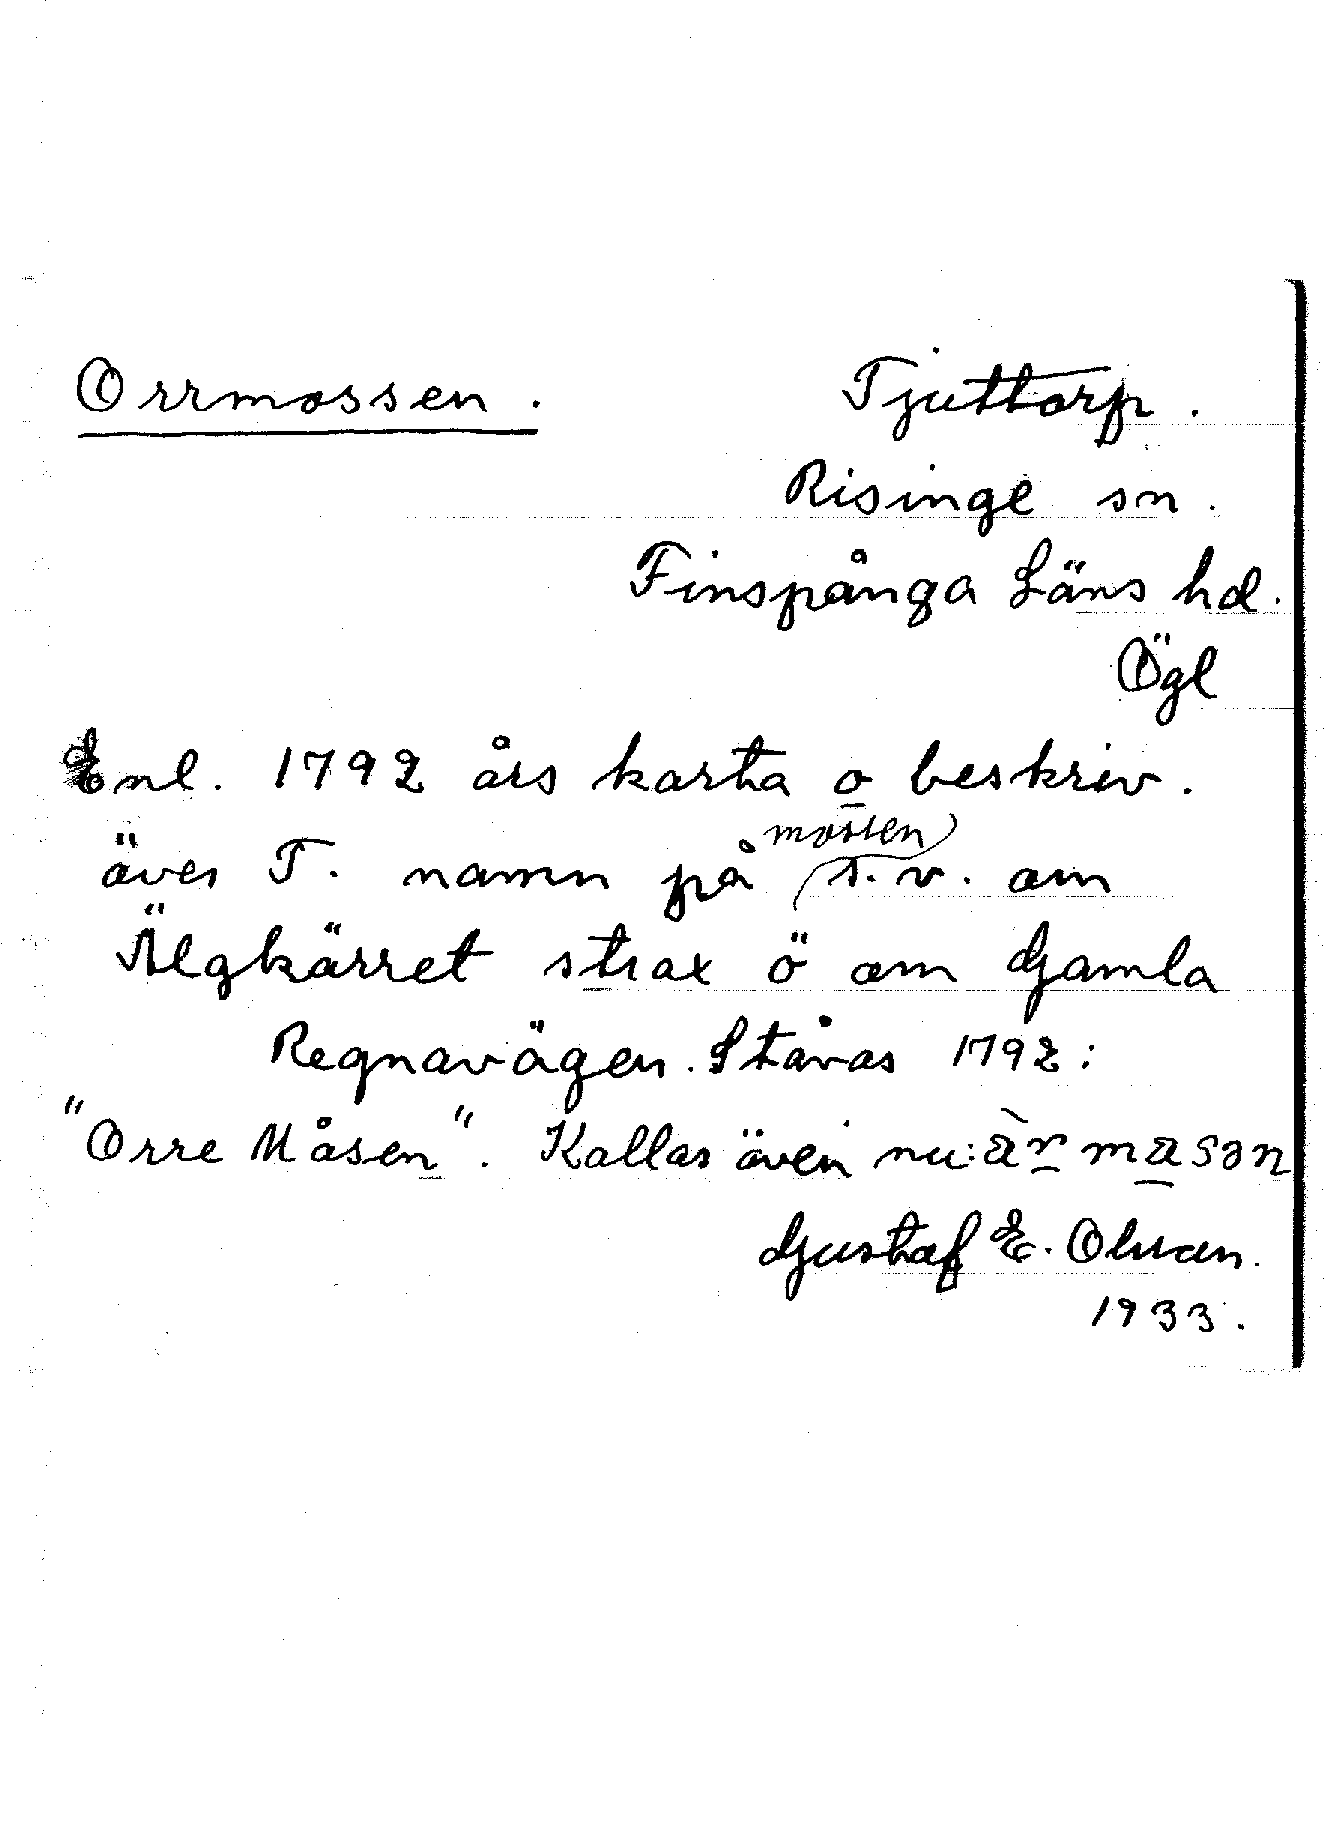 Orrmossen.
Tjuttorp.
Risinge sn.
Finspånga Läns hd.
Ögl
Enl. 1792 års karta o beskriv.
över T. namn på mossen s.v. om
Älgkärret strax ö om Gamla
Regnavägen. Stavas 1792:
"Orre Måsen". Kallas även nu:
Gustaf E. Olsson.
1933.